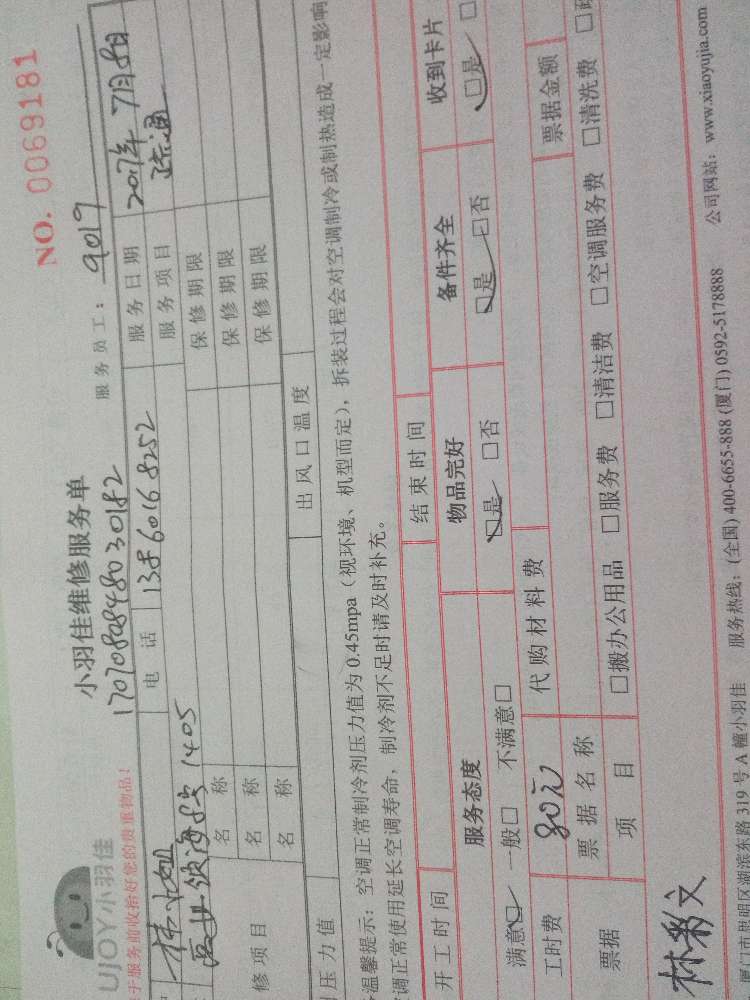 NO. 0069181
UJOY小羽佳
小羽佳维修服务单
17070808480 30182
服务员工: 9019
于服务前收拾好您的贵重物品!
电 话 138 6016 8252 服务日期 2017年 7月 8日
海 1405 服务项目 疏通
名 称 保修期限
修项目 名 称 保修期限
名 称 保修期限
压力值 出风口温度
温馨提示: 空调正常制冷剂压力值为 0.45mpa (视环境、机型而定), 拆装过程会对空调制冷或制热造成一定影响
调正常使用延长空调寿命, 制冷剂不足时请及时补充。
开工时间 结束时间
服务态度 物品完好 备件齐全 收到卡片
满意□ 一般□ 不满意□ □是 □否 □是 □否 □是 □
工时费 80元 代购材料费
票据 票据名称 票据金额
项 目 □搬办公用品 □服务费 □清洁费 □空调服务费 □清洗费 □
林彩文
厦门市思明区湖滨东路 319 号 A 幢小羽佳 服务热线: (全国) 400-6655-888 (厦门) 0592-5178888 公司网站: www.xiaoyujia.com